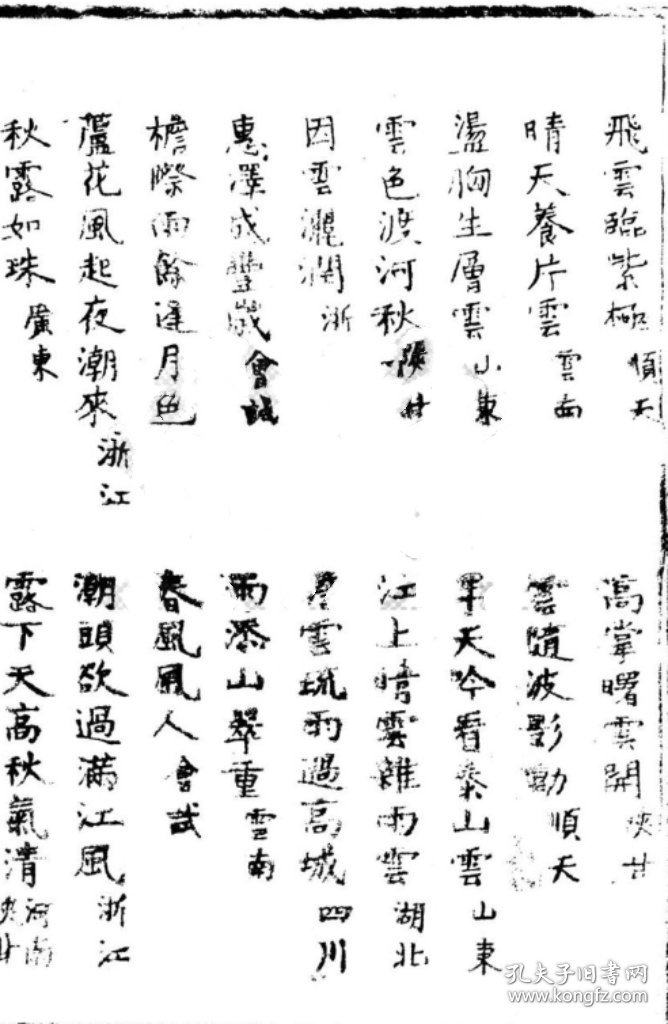 飛雲臨紫極 順天
晴天養片雲 雲南
盪胸生層雲 山東
雲色渡河秋 陝甘
因雲灑潤 浙
惠澤成豐歲 會試
檐際雨餘逢月色
蘆花風起夜潮來 浙江
秋露如珠 廣東
高掌曙雲開 陝甘
雲隨波影動 順天
半天吟看泰山雲 山東
江上晴雲雜雨雲 湖北
雲疏雨過高城 四川
雨添山翠重 雲南
春風風人 會試
潮頭欲過滿江風 浙江
露下天高秋氣清 河南
孔夫子旧书网
www.kongfz.com